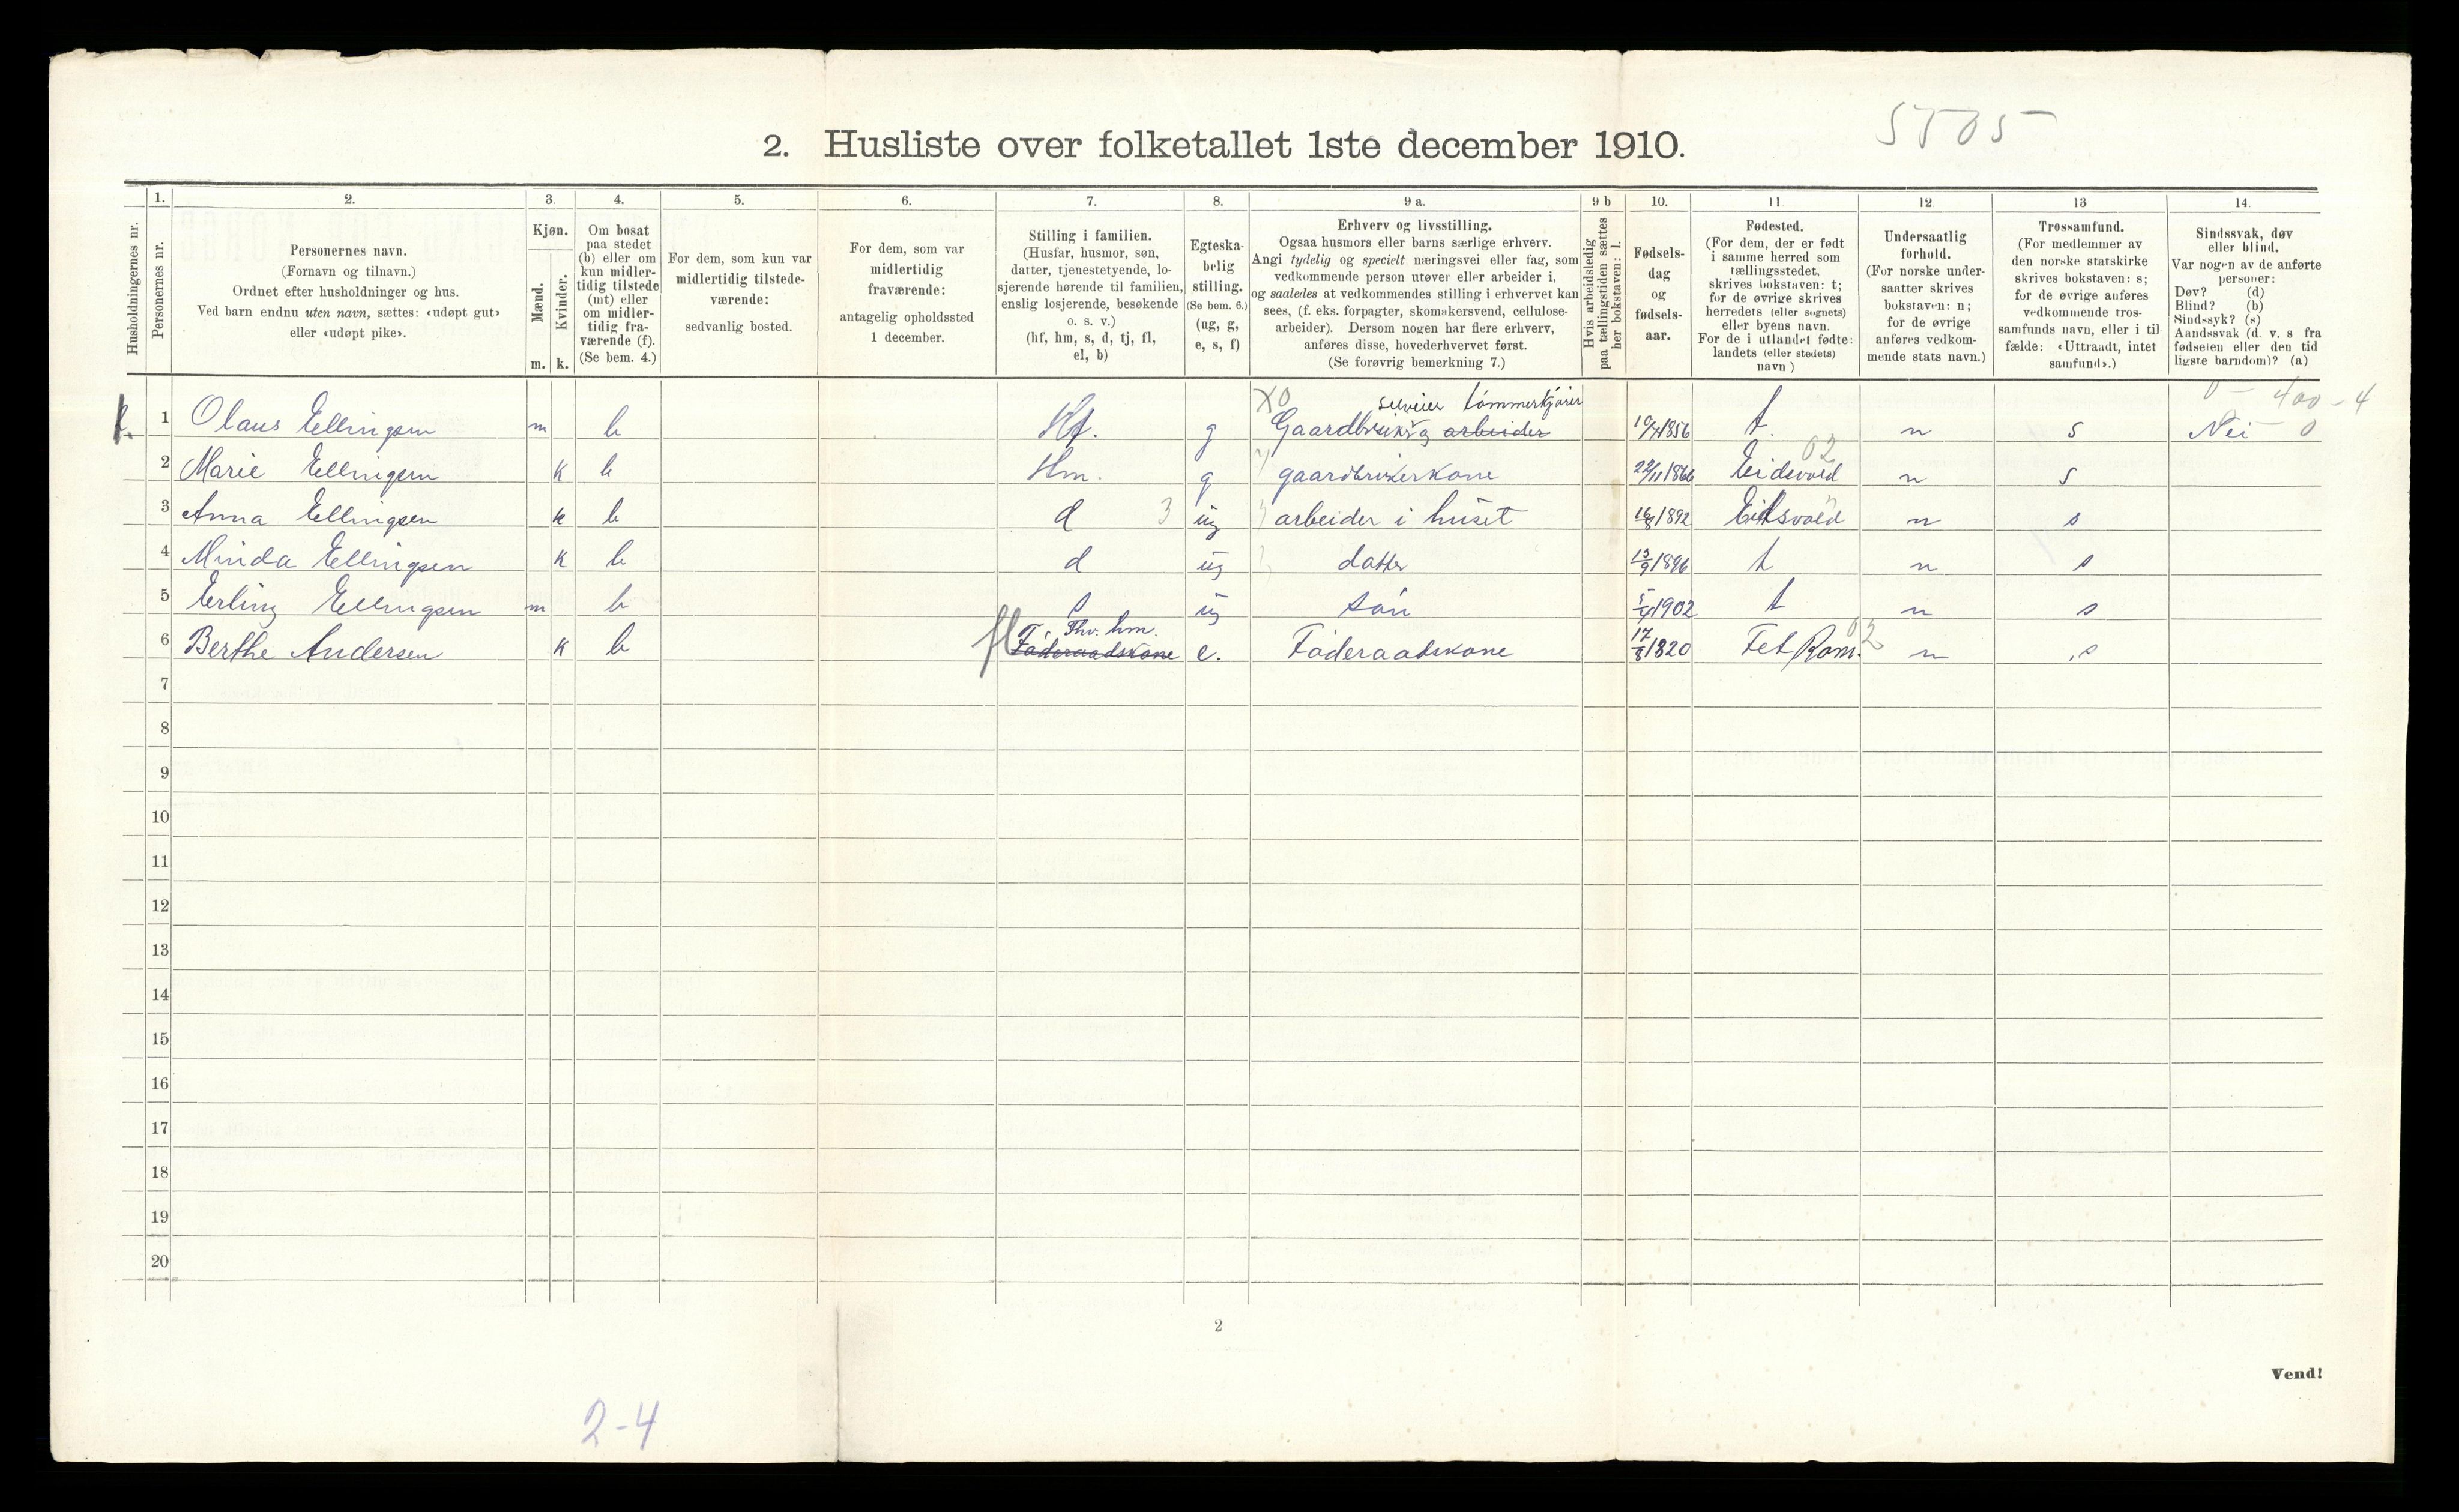 5505
2. Husliste over folketallet 1ste december 1910.
Husholdningernes nr.
1.
Personernes nr.
2.
Personernes navn.
(Fornavn og tilnavn.)
Ordnet efter husholdninger og hus.
Ved barn endnu uten navn, sættes: «udøpt gut»
eller «udøpt pike».
3.
Kjøn.
Mænd.
Kvinder.
m. k.
4.
Om bosat
paa stedet
(b) eller om
kun midler-
tidig tilstede
(mt) eller
om midler-
tidig fra-
værende (f).
(Se bem. 4.)
5.
For dem, som kun var
midlertidig tilstede-
værende:
sedvanlig bosted.
6.
For dem, som var
midlertidig
fraværende:
antagelig opholdssted
1 december.
7.
Stilling i familien.
(Husfar, husmor, søn,
datter, tjenestetyende, lo-
sjerende hørende til familien,
enslig losjerende, besøkende
o. s. v.)
(hf, hm, s, d, tj, fl,
el, b)
8.
Egteska-
belig
stilling.
(Se bem. 6.)
(ug, g,
e, s, f)
9 a.
Erhverv og livsstilling.
Ogsaa husmors eller barns særlige erhverv.
Angi tydelig og specielt næringsvei eller fag, som
vedkommende person utøver eller arbeider i,
og saaledes at vedkommendes stilling i erhvervet kan
sees, (f. eks. forpagter, skomakersvend, cellulose-
arbeider). Dersom nogen har flere erhverv,
anføres disse, hovederhvervet først.
(Se forøvrig bemerkning 7.)
9 b
Hvis arbeidsledig
paa tællingstiden sættes
her bokstaven: l.
10.
Fødsels-
dag
og
fødsels-
aar.
11.
Fødested.
(For dem, der er født
i samme herred som
tællingsstedet,
skrives bokstaven: t;
for de øvrige skrives
herredets (eller sognets)
eller byens navn.
For de i utlandet fødte:
landets (eller stedets)
navn )
12.
Undersaatlig
forhold.
(For norske under-
saatter skrives
bokstaven: n;
for de øvrige
anføres vedkom-
mende stats navn.)
13
Trossamfund.
(For medlemmer av
den norske statskirke
skrives bokstaven: s;
for de øvrige anføres
vedkommende tros-
samfunds navn, eller i til
fælde: «Uttraadt, intet
samfund».)
14.
Sindssvak, døv
eller blind.
Var nogen av de anførte
personer:
Døv? (d)
Blind? (b)
Sindssyk? (s)
Aandssvak (d. v. s fra
fødselen eller den tid
ligste barndom)? (a)
XO selveier tømmerkjører 0 - 400 - 4
1 Olaus Ellingsen m b Hf. g Gaardbruker og arbeider 1856 t. n s Nei 0
02
2 Marie Ellingsen k b Hm. g gaardbrukerkone 22/11 1866 Eidsvold n s
3 Anna Ellingsen k b d 3 ug arbeider i huset 16/8 1892 Eidsvold n s
4 Minda Ellingsen k b d ug datter 13/9 1896 t n s
5 Erling Ellingsen m b s ug søn 1902 t n s
fl Fhv. hm. 02
6 Berthe Andersen k b Føderaadskone e. Føderaadskone 17/8 1820 Fet Rom. n s
7
8
9
10
11
12
13
14
15
16
17
18
19
20
2
Vend!
2-4